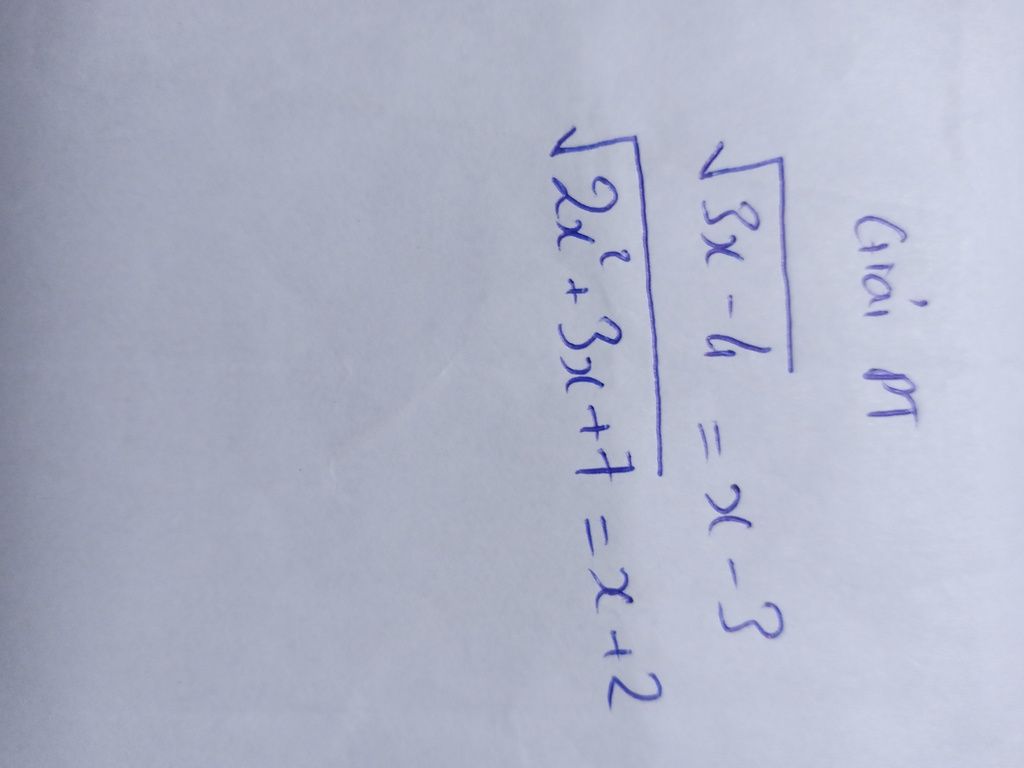 Giải PT
√(3x - 4) = x - 3
√(2x² + 3x + 7) = x + 2